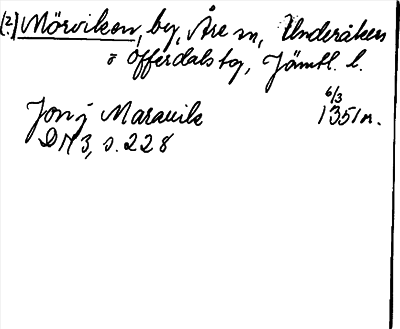 (?) Mörviken, by, Åre sn, Undersåkers
o Offerdals tg, Jämtl. l.
Jon j Marauik 6/3 1351 n.
DN 3, s. 228